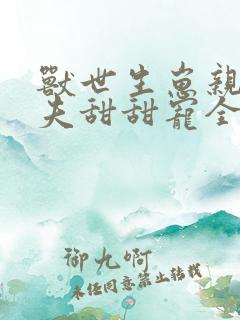 獸世生崽親
夫甜甜寵全
御九啊
未經同意禁止轉載